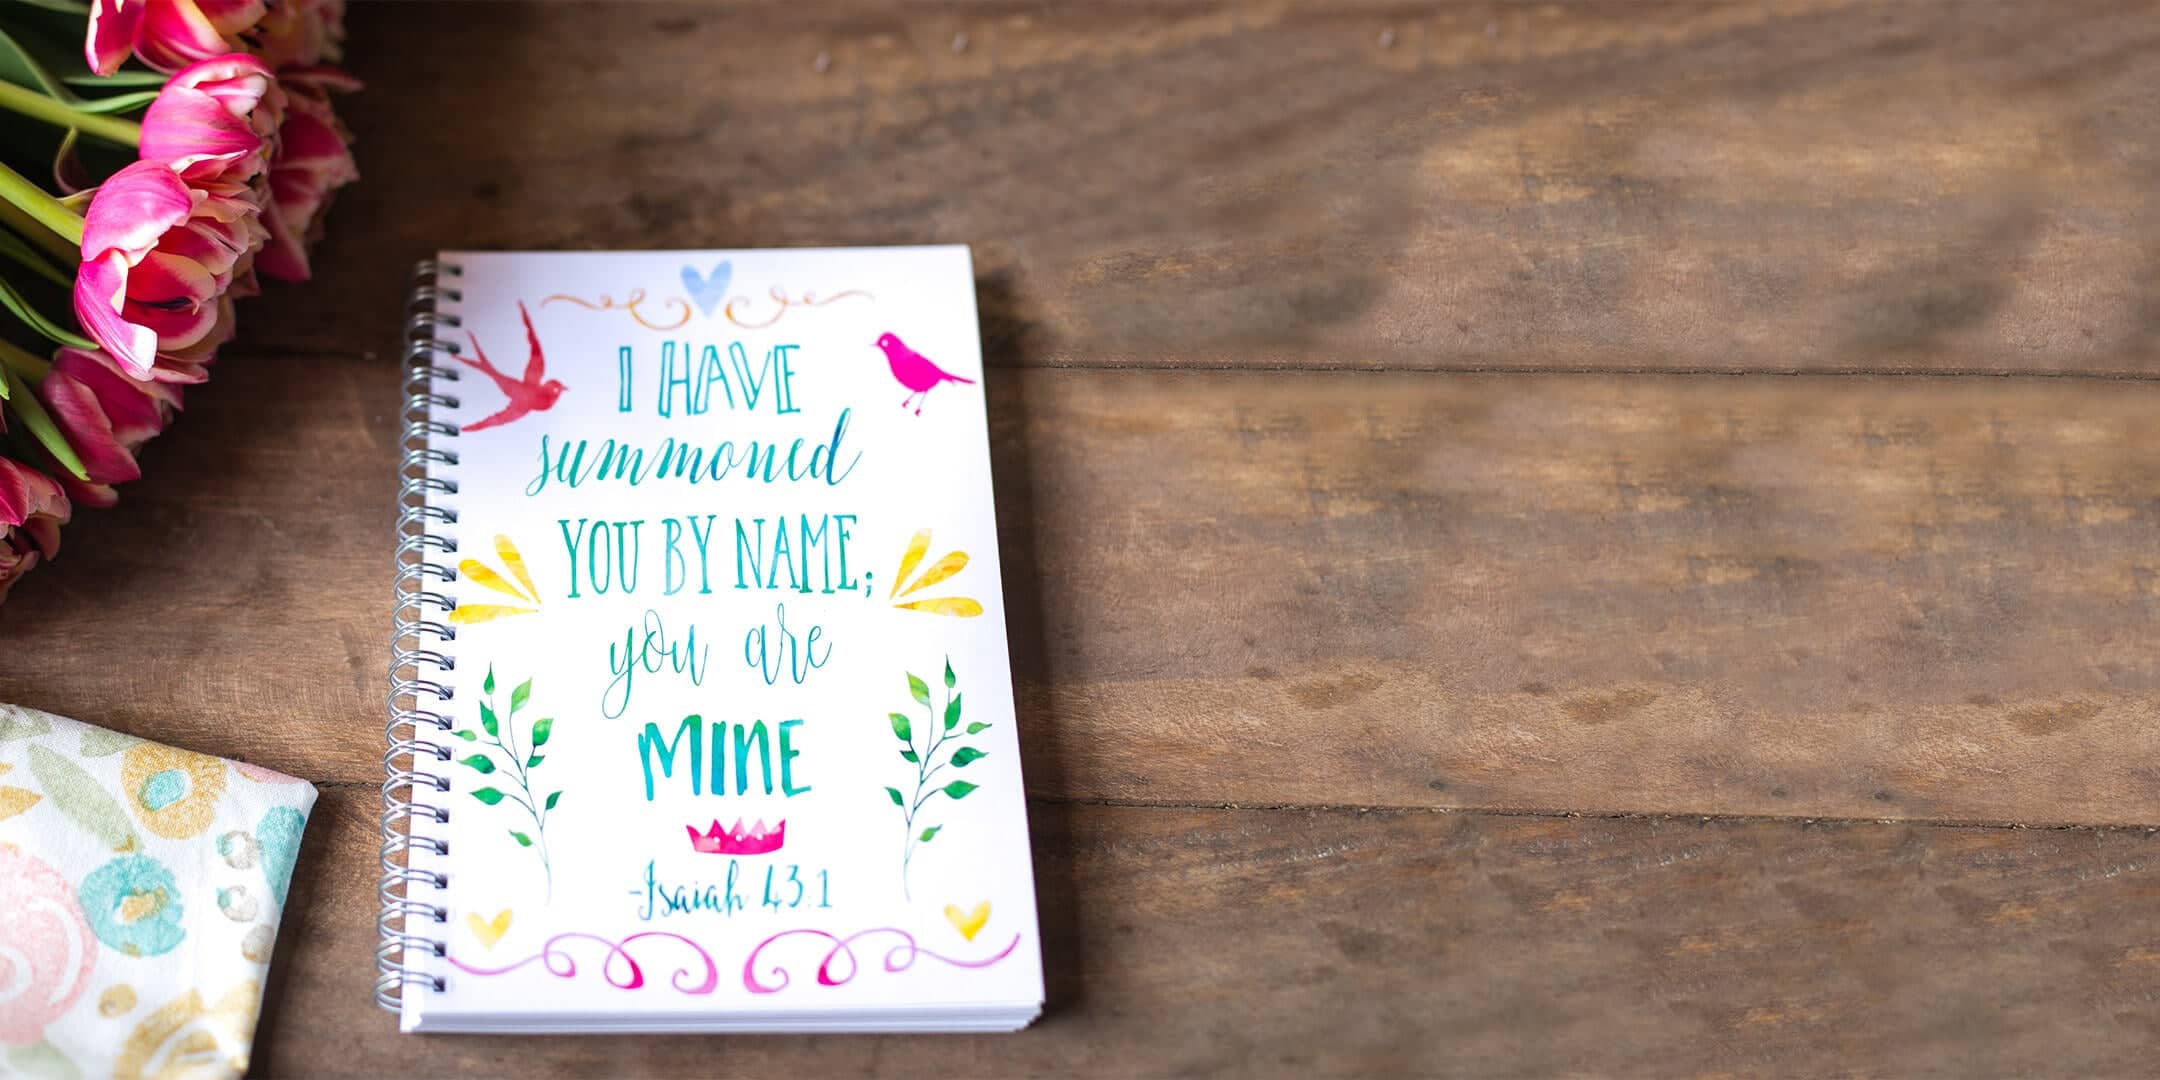 I HAVE
summoned
YOU BY NAME;
you are
MINE
-Isaiah 43:1